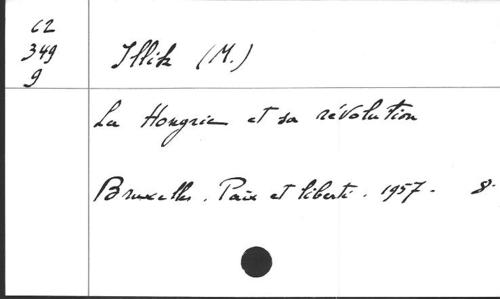 C2
349
9
Illik (M.)
La Hongrie et sa révolution
Bruxelles. Paix et liberté. 1957. 8.